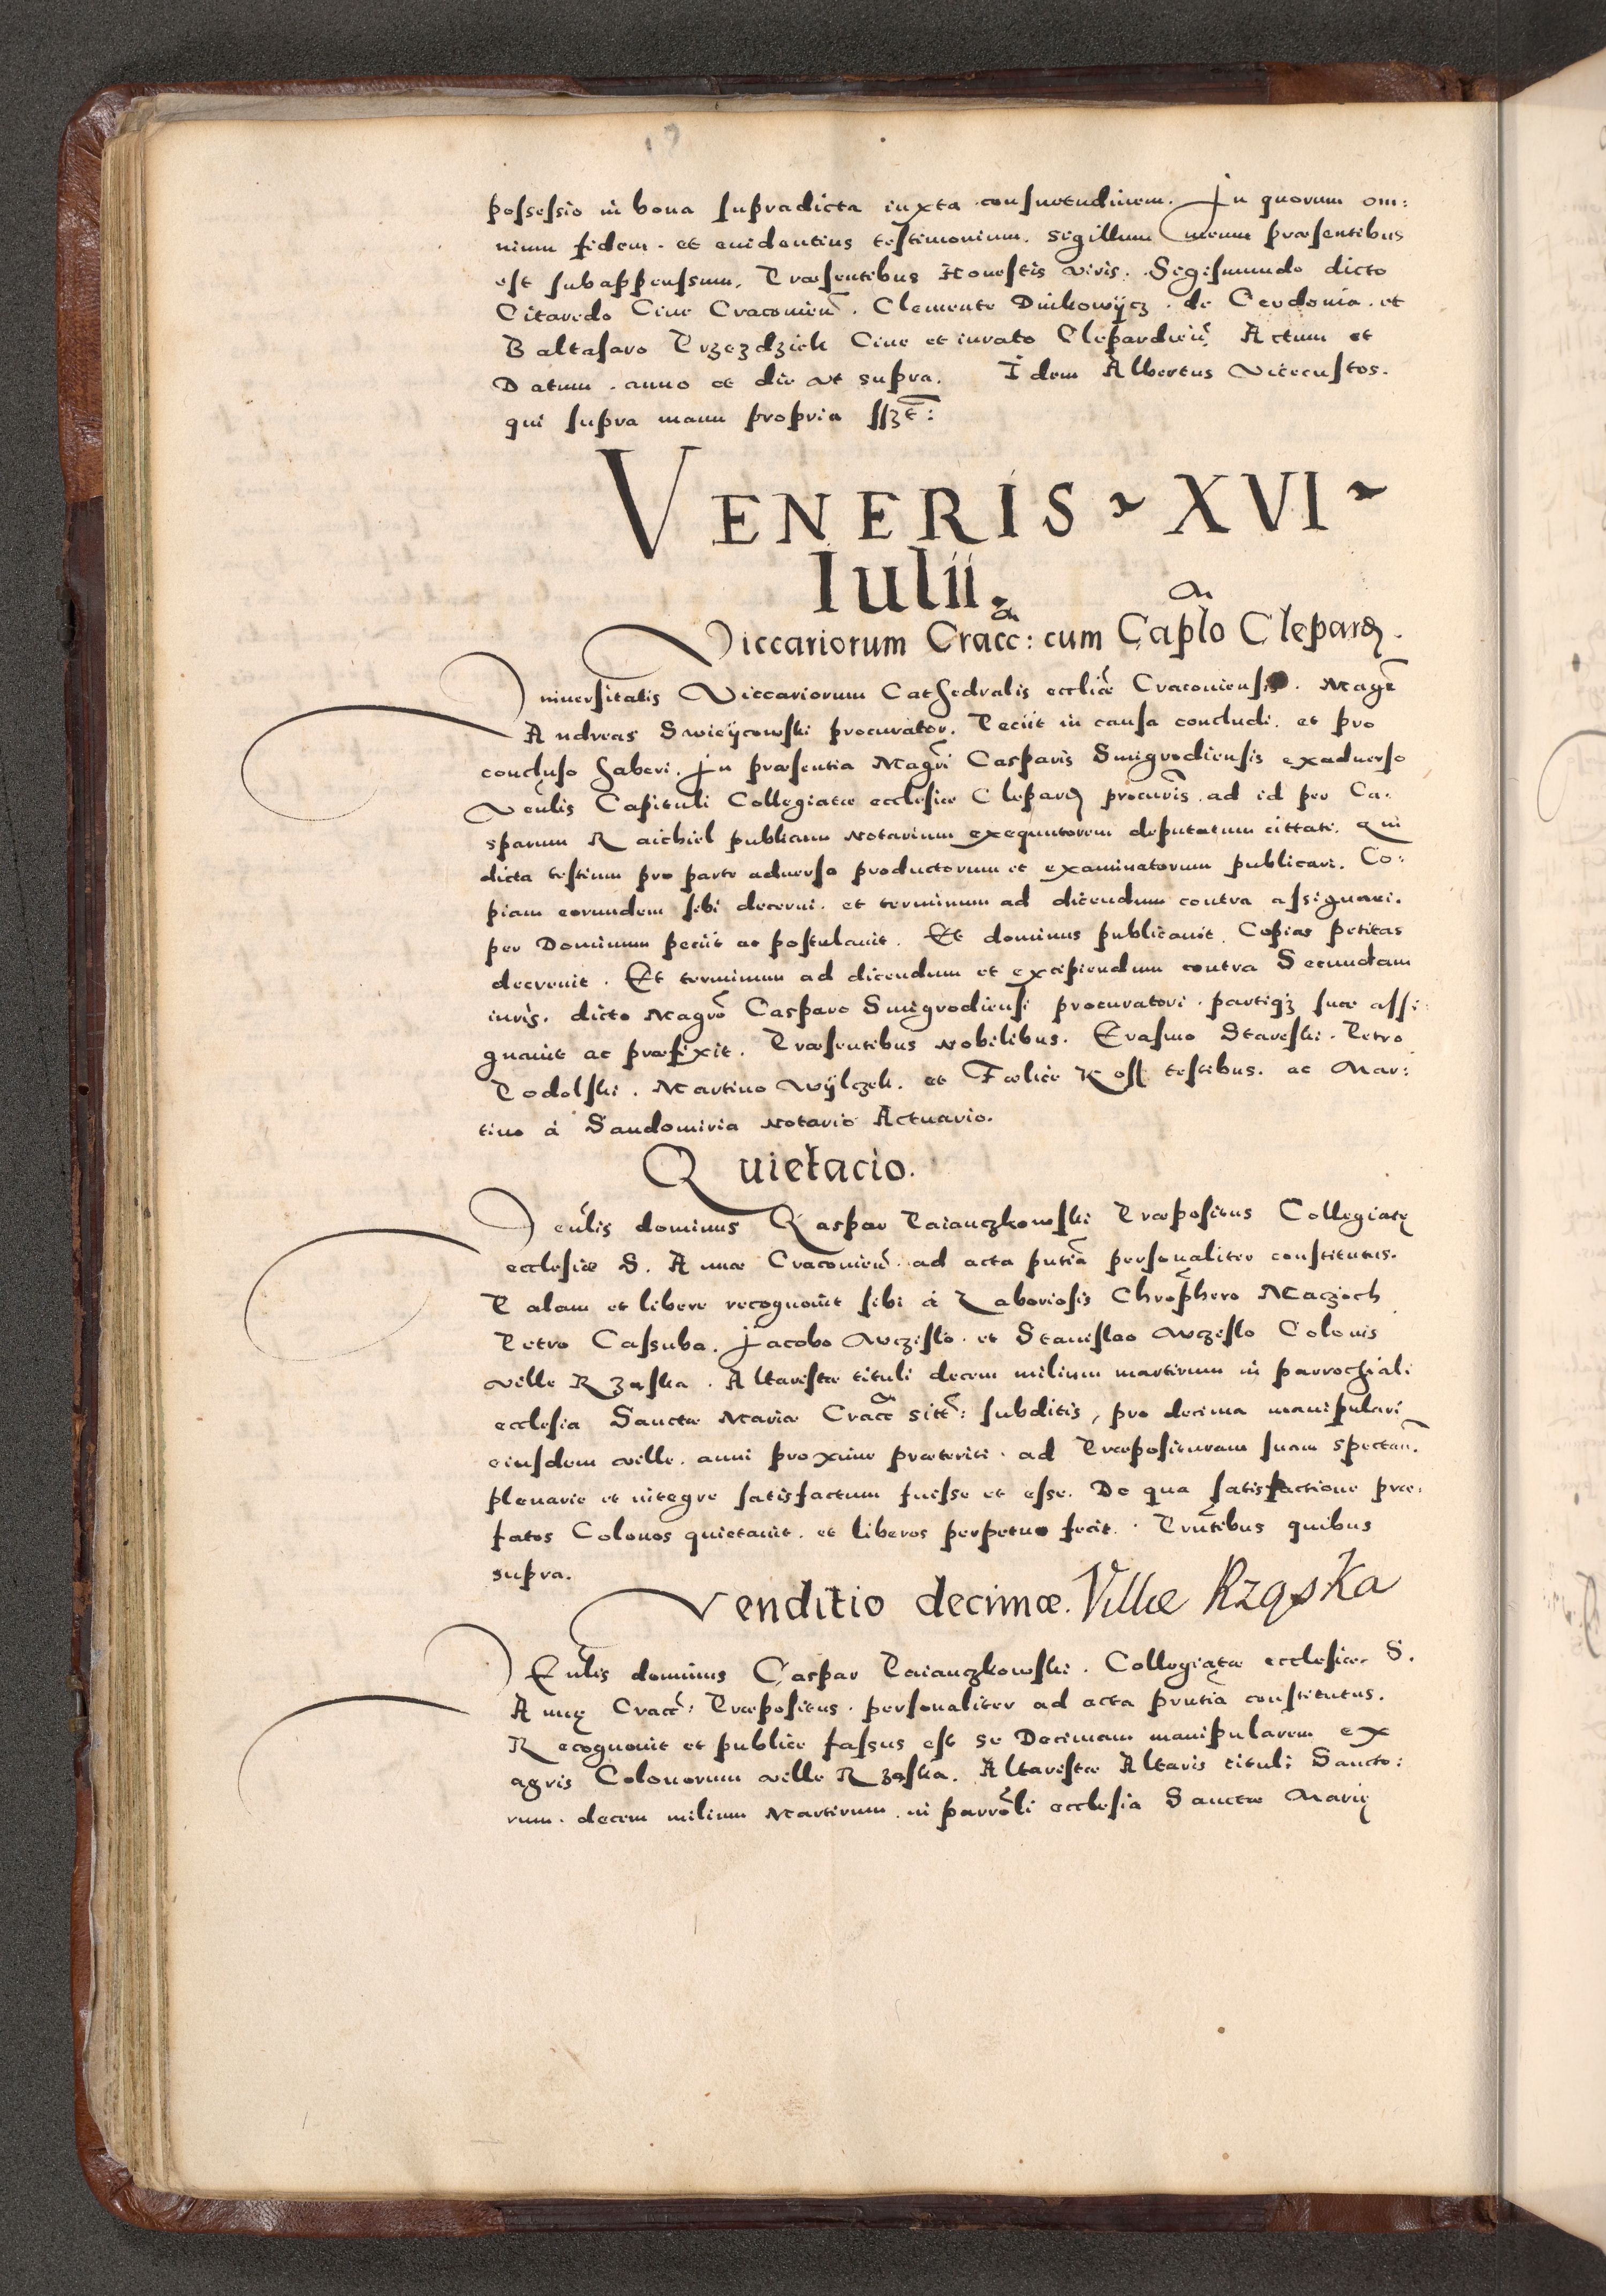 possessio in bona supradicta iuxta consuetudinem. In quorum om:
nium fidem. et euidentius testimonium. sigillum meum præsentibus
est subappenssum. Præsentibus Honestis viris. Segismundo dicto
Citaredo Ciue Cracouien̄. Clemente Dinkowÿcz. de Cerdonia. et
Baltasaro Przezdziek Ciue et iurato Clepardien̄ Actum et
Datum. anno et die vt supra. Idem Albertus Vicecustos.
qui supra manu propria sszt̄:
VENERIS XVI
Iulii
Viccariorum Cracc: cum Caplo Clepard.
Vniuersitatis Viccariorum Cathedralis eccliæ Cracouiensis. Magr̄
Andreas Swieÿcowski procurator. Peciit in causa concludi. et pro
concluso haberi. In præsentia Magr̄i Casparis Smigrodiensis exaduerso
Veñlis Capituli Collegiatæ ecclesiæ Clepard procur̄is. ad id per Ca:
sparum Raichiel publicum Notarium exequutorem deputatum cittati. qui
dicta testium pro parte aduersa productorum et examinatorum publicari. Co:
piam eorundem sibi decerni. et terminum ad dicendum contra assignari.
per Dominum peciit ac postulauit. Et dominus publicauit. Copias petitas
decreuit. Et terminum ad dicendum et excipiendum contra Secundam
iuris. dicto Magr̄o Casparo Smigrodiensi procuratori. partiqȝ suæ assi:
gnauit ac præfixit. Præsentibus Nobilibus. Erasmo Stareski. Petro
Podolski. Martino Wÿlczek. et Fœlice Koss testibus. ac Mar:
tino á Sandomiria Notario Actuario.
Quietacio.
Veñlis dominus Kaspar Paianczkowski Præpositus Collegiatę
ecclesiæ S. Annæ Cracouien̄. ad acta pñtia personaliter constitutus.
Palam et libere recognouit sibi á Laboriosis Chrophero Maczoch
Petro Cassuba. Jacobo Wczesло. et Stanislao Wczeslo Colonis
ville Rząska. Altaristæ tituli decem milium martirum in parrochiali
ecclesia Sanctæ Mariæ Cracc sitt̄: subditis, pro decima manipulari
eiusdem ville. anni proxime præteriti. ad Præposituram suam spectan̄.
plenarie et integre satisfactum fuisse et esse. De qua satisfactione præ:
fatos Colonos quietauit. et liberos perpetuo fecit. Prñtibus quibus
supra.
Venditio decimæ. Villæ Rząska
VEñlis dominus Caspar Paianczkowski. Collegiatæ ecclesiæ S.
Annę Cracc̄: Præpositus. personaliter ad acta prñtia constitutus.
Recognouit et publice fassus est se Decimam manipularem ex
agris Colonorum ville Rząska. Altaristæ Altaris tituli Sancto:
rum. decem milium Martirum. in parrōli ecclesia Sanctæ Marię